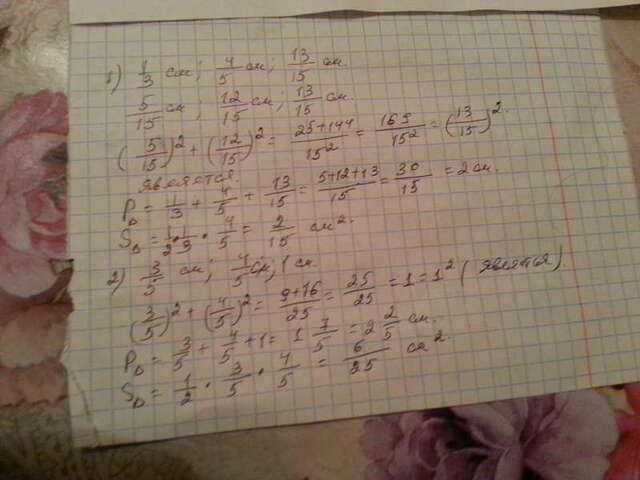 1) 1/3 см; 4/5 см; 13/15 см.
5/15 см; 12/15 см; 13/15 см.
(5/15)² + (12/15)² = 25+144/15² = 169/15² = (13/15)².
является.
P△ = 1/3 + 4/5 + 13/15 = 5+12+13/15 = 30/15 = 2 см.
S△ = 1/2 · 1/3 · 4/5 = 2/15 см².
2) 3/5 см; 4/5 см; 1 см.
(3/5)² + (4/5)² = 9+16/25 = 25/25 = 1 = 1² (являтся).
P△ = 3/5 + 4/5 + 1 = 1 7/5 = 2 2/5 см.
S△ = 1/2 · 3/5 · 4/5 = 6/25 см².